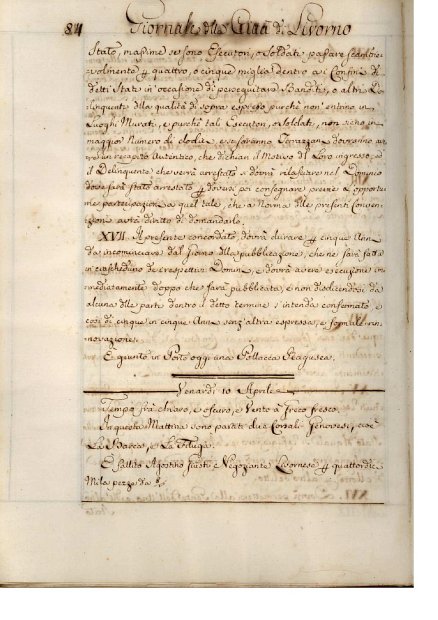 84 Giornale della Città di Livorno
Stato, massime se sono Esecutori, o Soldati passare scambie-
volmente per quattro, o cinque miglia dentro a i Confini di
detti Stati in occasione di perseguitare Banditi, o altri De-
linquenti della qualità di sopra espressa purché non entrino in
Luoghi Murati, e purché tali Esecutori, o Soldati, non sieno in
maggior Numero di dodici, e se saranno dovranno av-
ere un recapito Autentico, che dichiari il Motivo del Loro ingresso, e
il Delinquente che verrà arrestato si dovrà rilasciare nel Dominio
dove sarà stato arrestato per doversi poi consegnare previe le opportu-
ne partecipazioni a quel tale, che a Norma delle presenti Conven-
zioni avrà diritto di domandarlo.
XVII. Il presente concordato, dovrà durare per cinque Anni
da incominciare dal giorno della pubblicazione, che ne sarà fatta
in ciascheduno de respettivi Domini, e dovrà avere esecuzione im-
mediatamente doppo che sarà pubblicato, e non disdicendosi da
alcuna delle parte dentro il detto termine s'intenda confermato, e
così di cinque in cinque Anni senz'altra espressa, e formale rin-
novazione.
È giunto in Porto oggi una Pollacca Ragusea.
Venardì 10 Aprile
Tempo fra chiaro, e oscuro, e Vento a Greco fresco.
In questa Mattina sono partiti due Corsali Genovesi, cioè
La Barca, e La Filuga.
È fallito Agostino Negoziante Livornese per quattordici
Mila pezze da